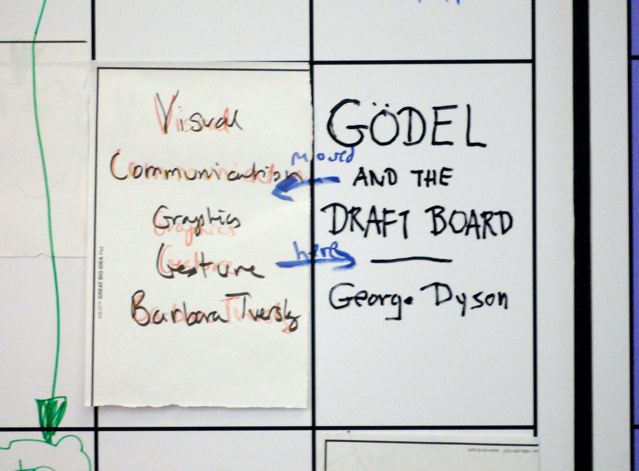 Visual
Communication
Graphics
Gesture
Barbara Tversky
moved
here
GÖDEL
AND THE
DRAFT BOARD
George Dyson
GREAT BIG IDEA